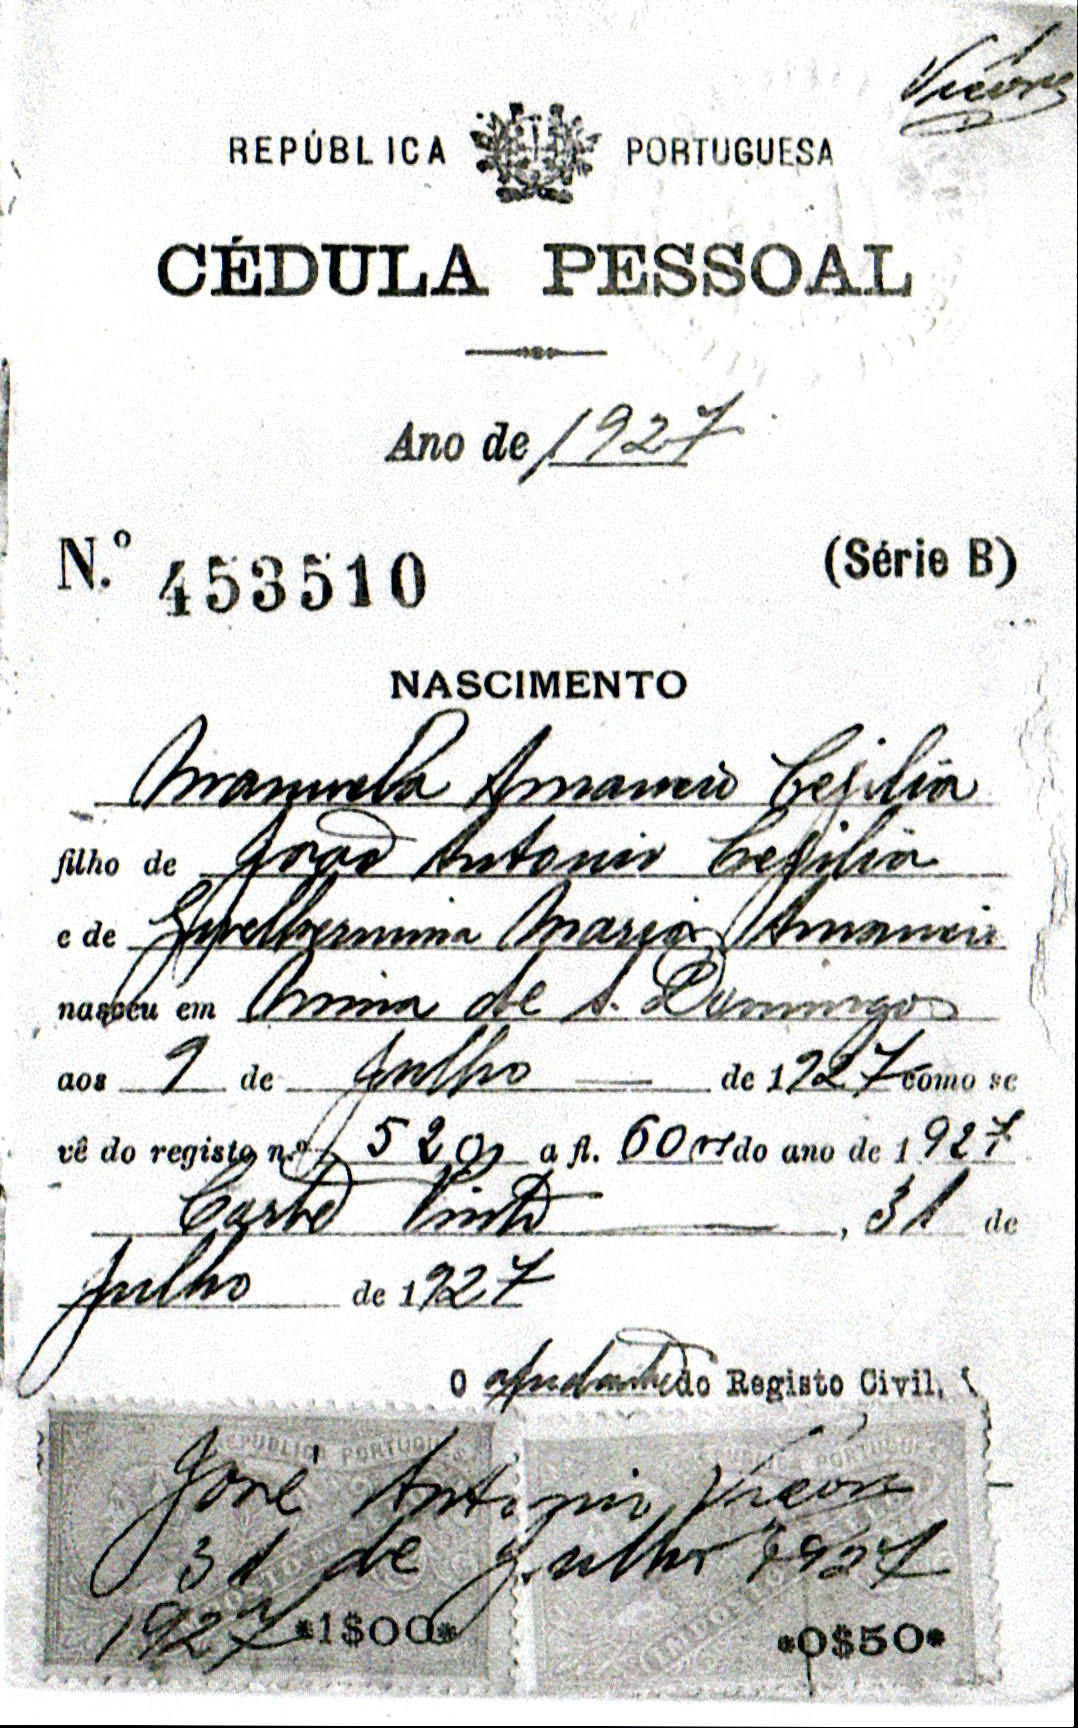 REPÚBLICA PORTUGUESA
CÉDULA PESSOAL
Ano de 1927
N.º 453510 (Série B)
NASCIMENTO
Manuela Amancio Cezilia
filho de João Antonio Cezilia
e de Guelhermina Maria Amancia
nasceu em Mina de S. Domingos
aos 9 de Julho de 1927 como se
vê do registo n.º 520, a fl. 60 do ano de 1927
, 31 de
Julho de 1927
O Ajudante do Registo Civil,
REPUBLICA PORTUGUESA REPUBLICA PORTUGUESA
José Antonio
31 de Julho 1927
1927 *1$00* *0$50*